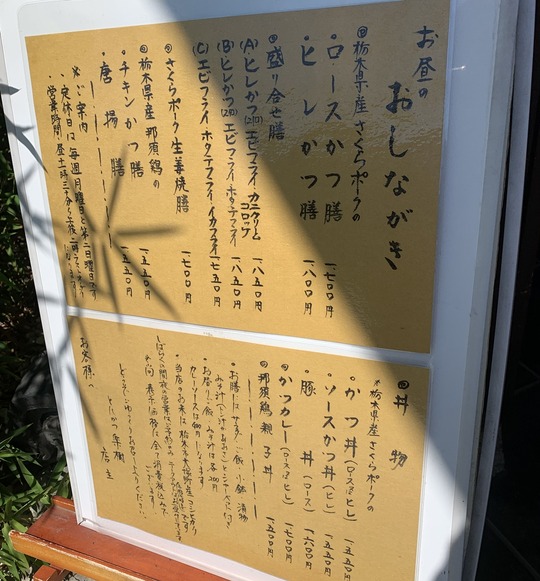 お昼の
おしながき
◎栃木県産さくらポークの
・ロースかつ膳 一、七〇〇円
・ヒレかつ膳 一、八〇〇円
◎盛り合せ膳
(A)ヒレかつ(2個)エビフライ カニクリームコロッケ 一、八五〇円
(B)ヒレかつ(2個)エビフライ ホタテフライ 一、八五〇円
(C)エビフライ ホタテフライ イカフライ 一、七五〇円
◎さくらポーク生姜焼膳 一、七〇〇円
◎栃木県産 那須鶏の
・チキンかつ膳 一、五五〇円
・唐揚膳 一、五五〇円
※ご案内
・定休日は毎週月曜日と第二日曜日です
・営業時間・昼十一時三十分から午後二時
◎丼物
※栃木県産さくらポークの
・かつ丼(ロース又はヒレ) 一、五五〇円
・ソースかつ丼(ヒレ) 一、五五〇円
・豚丼(ロース) 一、六〇〇円
・かつカレー(ロース又はヒレ) 一、七〇〇円
◎那須鶏親子丼 一、五〇〇円
・お膳にはサラダ・ご飯・小鉢・漬物
みそ汁
・お昼のご飯・みそ汁は各200円
カレーソースは600円になります
・当店のお米は栃木県大田原産コシヒカリ
お客様へ
とんかつ
店主